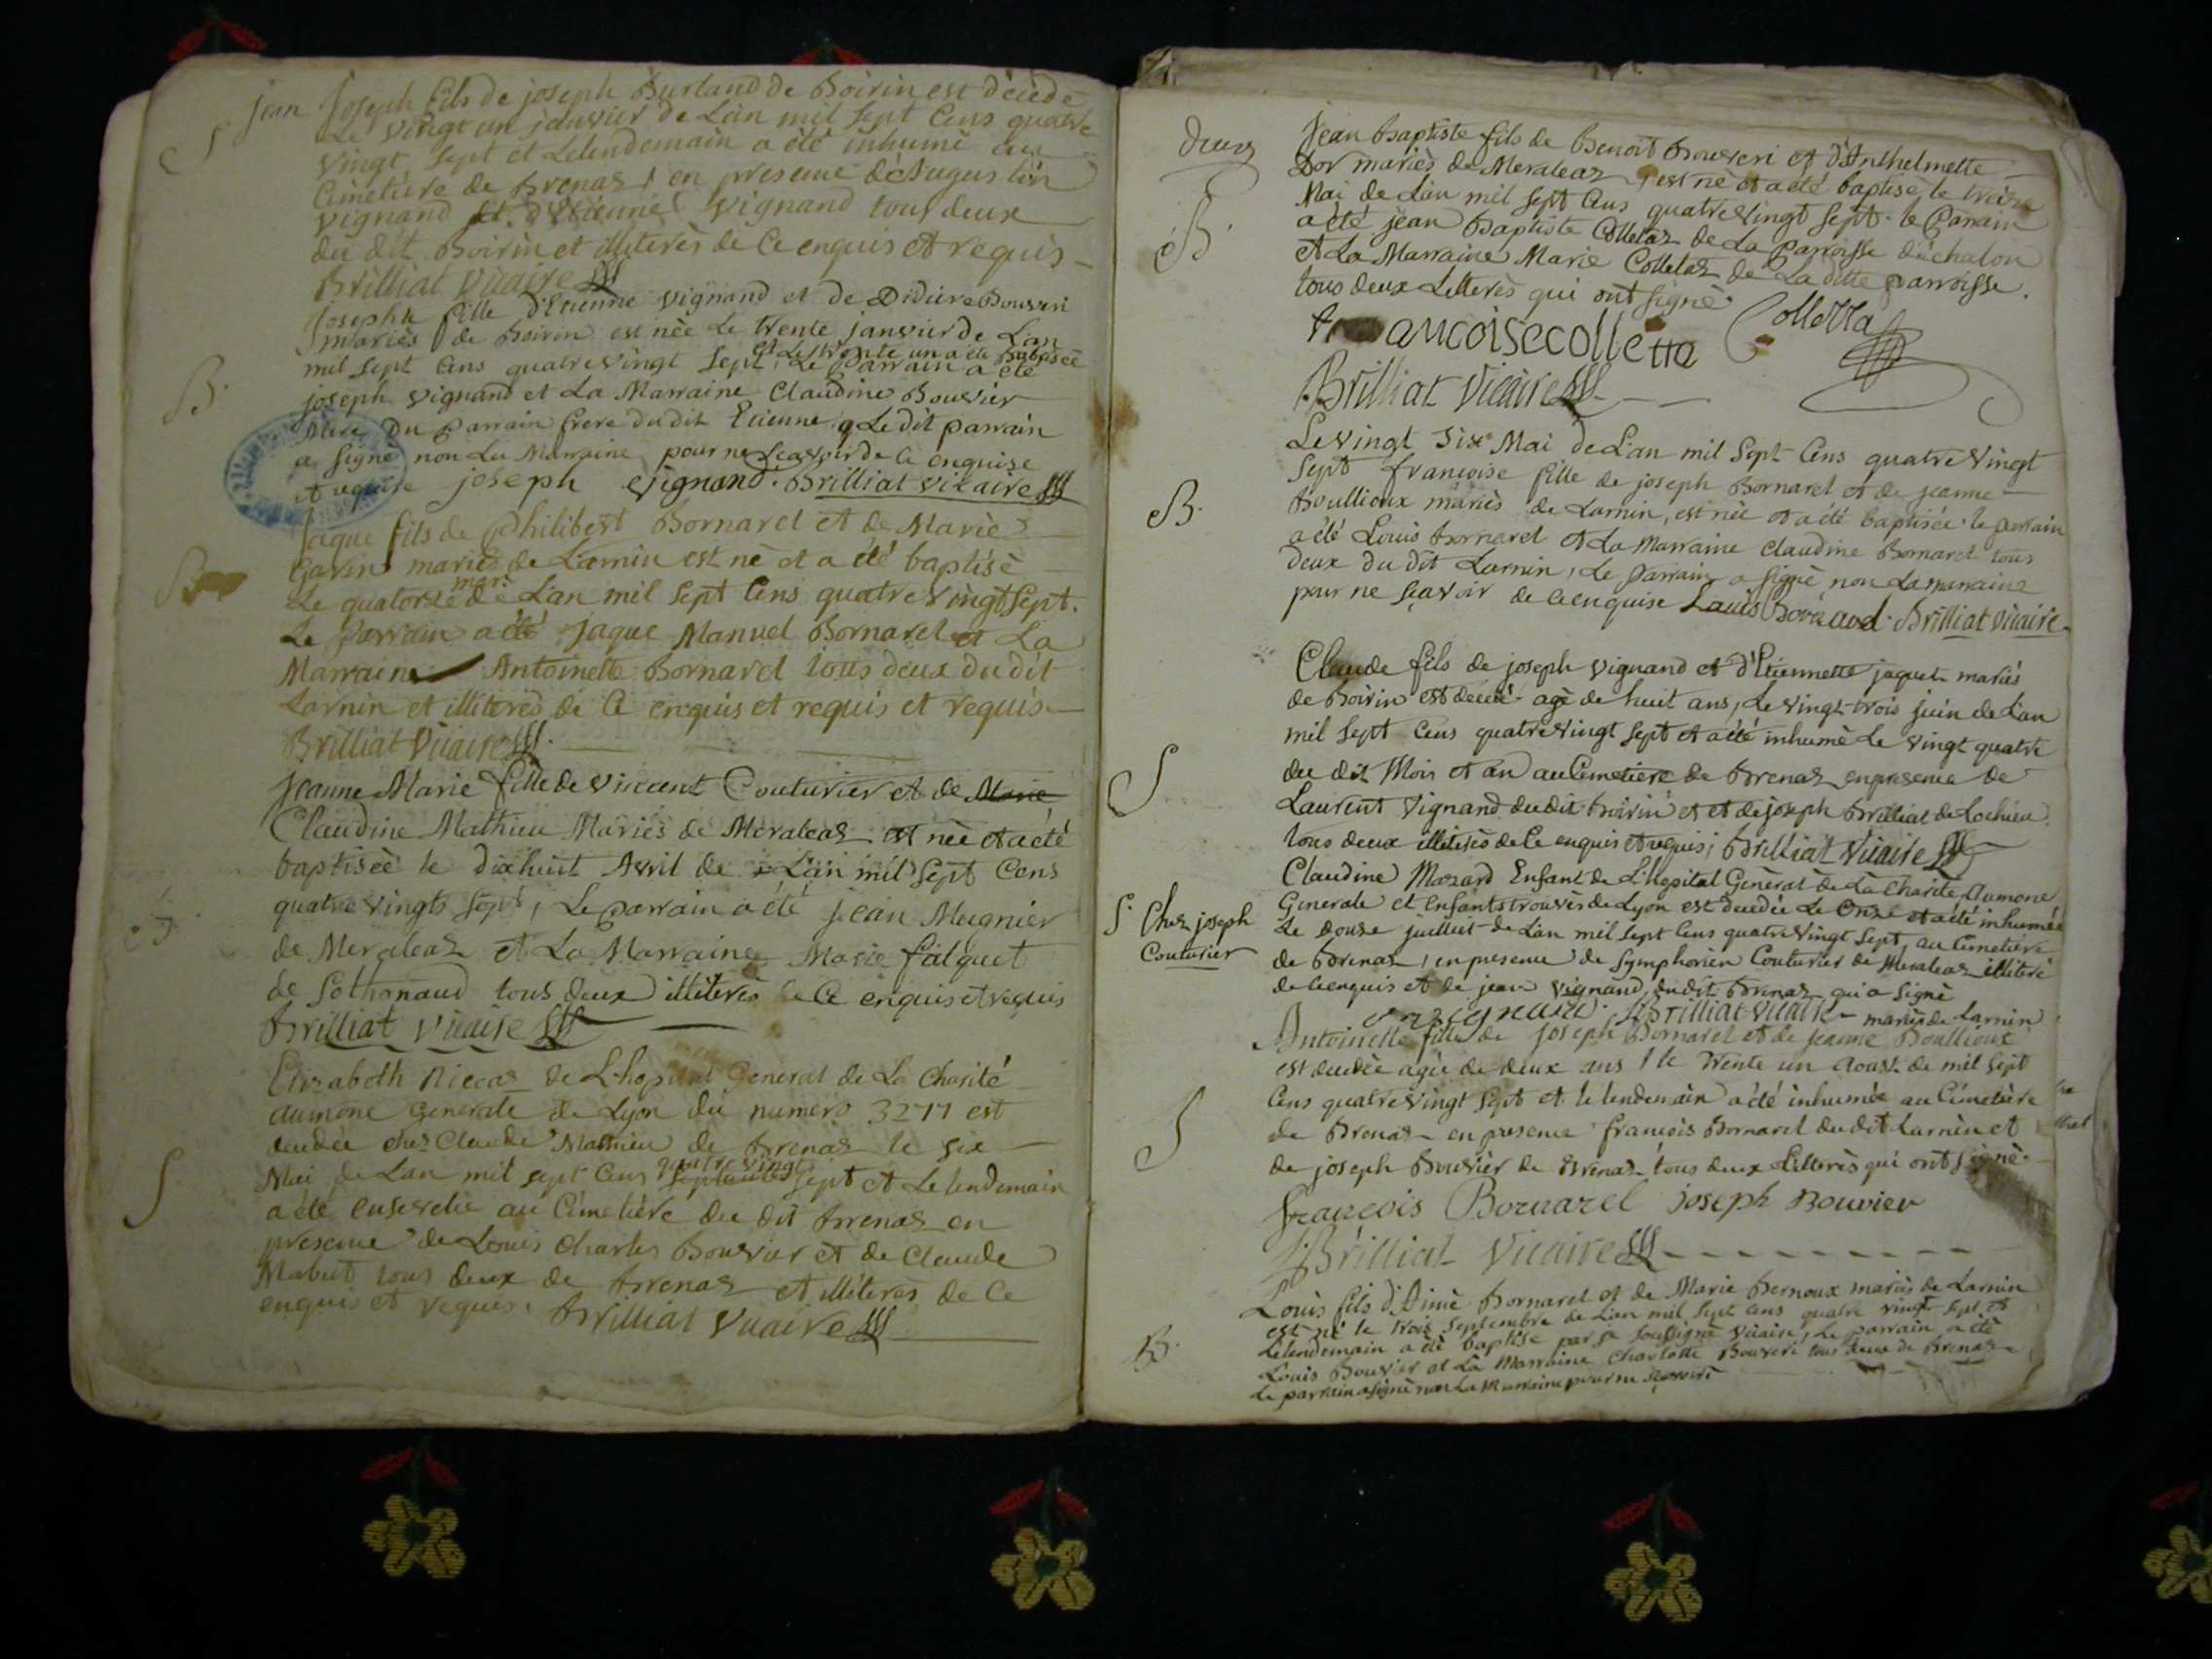 S
jean Joseph fils de joseph Burtand de Boirin est décédé
Le vingt un janvier de L'an mil sept Cens quatre
vingt sept et Lelendemain a été inhumé au
Cimetière de Brenaz, en presence d'Augustin
vignand et d'Etienne vignand tous deux
du dit Boirin et illiterès de Ce enquis et requis
Brilliat Vicaire
B.
Josephte fille d'Etienne vignand et de Didiere Bouvri
mariès de Boirin est née Le trente janvier de L'an
et Le trente un a été Babtisée
mil sept Cens quatre vingt sept, Le Parrain a été
joseph vignand et La Marraine Claudine Bouvier
Mere Du parrain frere du dit Etienne Le dit parrain
a signé non La Marraine pour ne Scavoir de Ce enquise
et requise joseph vignand. Brilliat vicaire
B
Jaque fils de Philibert Bornarel et de Marie
Gavin mariès de Larnin est né et a été baptisé
mars
Le quatorze de L'an mil sept Cens quatre vingt sept.
Le Parrain a été Jaque Manuel Bornarel et La
Marraine Antoinette Bornarel tous deux du dit
Larnin et illiteres de Ce enquis et requis et requis
Brilliat Vicaire
Jeanne Marie fille de vincent Couturier et de Marie
Claudine Mathieu Mariès de Meraleaz est née et a été
baptisée le dixhuit Avril de L'an mil Sept Cens
quatre vingts sept, Le parrain a été jean Meignier
de Meraleaz et La Marraine Marie falquet
de Sothonaud tous deux illiterès de Ce enquis et requis
Brilliat Vicaire
S
Elizabeth Niecaz de L'hopital General de La Charité
aumone Generale de Lyon du numero 3277 est
decedée chez Claude Mathieu de Brenaz le six
quatre vingt
Mai de L'an mil sept Cens septantes sept et Le lendemain
a été ensevelie au Cimetière du dit Brenaz en
presence de Louis Charles Bouvier et de Claude
Mabut tous deux de Brenaz et illiteres de Ce
enquis et requis. Brilliat Vicaire
B.
Jean baptiste fils de Benoit Bouveri et d'Anthelmette
Dor mariès de Meraleaz, est né et a été baptisé le treize
Mai de L'an mil sept Cens quatre vingt sept. le Parrain
a été jean Baptiste Colletaz de La Parroisse d'échalon
et La Marraine Marie Colletaz de La ditte parroisse.
tous deux Litterès qui ont signé.
francoise colletta Colletta
Brilliat Vicaire
B.
Le vingt Six Mai de L'an mil Sept Cens quatre Vingt
Sept francoise fille de joseph Bornarel et de jeanne
Boullioux mariès de Larnin, est née et a été baptisée. le parrain
a été Louis Bornarel et La Marraine Claudine Bornarel tous
deux du dit Larnin, Le Parrain a signé non La marraine
pour ne sçavoir de Ce enquise Louis Bornarel. Brilliat Vicaire
S
Claude fils de joseph vignand et d'Etiennette jaquet mariés
de Boirin est decedé agé de huit ans, Le vingt-trois juin de L'an
mil sept Cens quatre vingt sept et a été inhumé Le vingt quatre
du dit Mois et an au Cimetiere de Brenaz en presence de
Laurent vignand du dit Boirin et et de joseph Brilliat de Lochieu
tous deux illiterès de Ce enquis et requis, Brilliat Vicaire
S. Chez joseph
Couturier
Claudine Mazard Enfant de L'hopital Général de La Charité, Aumone
Generale et Enfants trouvès de Lyon est decedée Le Onze et a été inhumée
Le douze juillet de L'an mil sept Cens quatre vingt sept, au Cimetiere
de Brenaz, en presence de Symphorien Couturier de Meraleaz illiteré
de Ce enquis et de jean vignand du dit Brenaz qui a signé
vignand. Brilliat Vicaire
mariès de Larnin
S
Antoinette fille de joseph Bornarel et de jeanne Boullioux
est decedée agée de deux ans, le trente un Aoust de mil sept
Cens quatre vingt sept et le lendemain a été inhumée au Cimetière
de Brenaz en presence francois Bornarel du dit Larnin et
de joseph Bouvier de Brenaz tous deux Litterès qui ont signé.
francois Bornarel joseph Bouvier
Brilliat Vicaire
B.
Louis fils d'Aimé Bornarel et de Marie Bernoux mariès de Larnin
est né le trois Septembre de L'an mil sept cens quatre vingt sept et
Lelendemain a été baptisé par je soussigné vicaire, Le parrain a été
Louis Bouvier et La Marraine Charlotte Bouveri tous deux de Brenaz
Le parrain a signé non La Marraine pour ne sçavoir